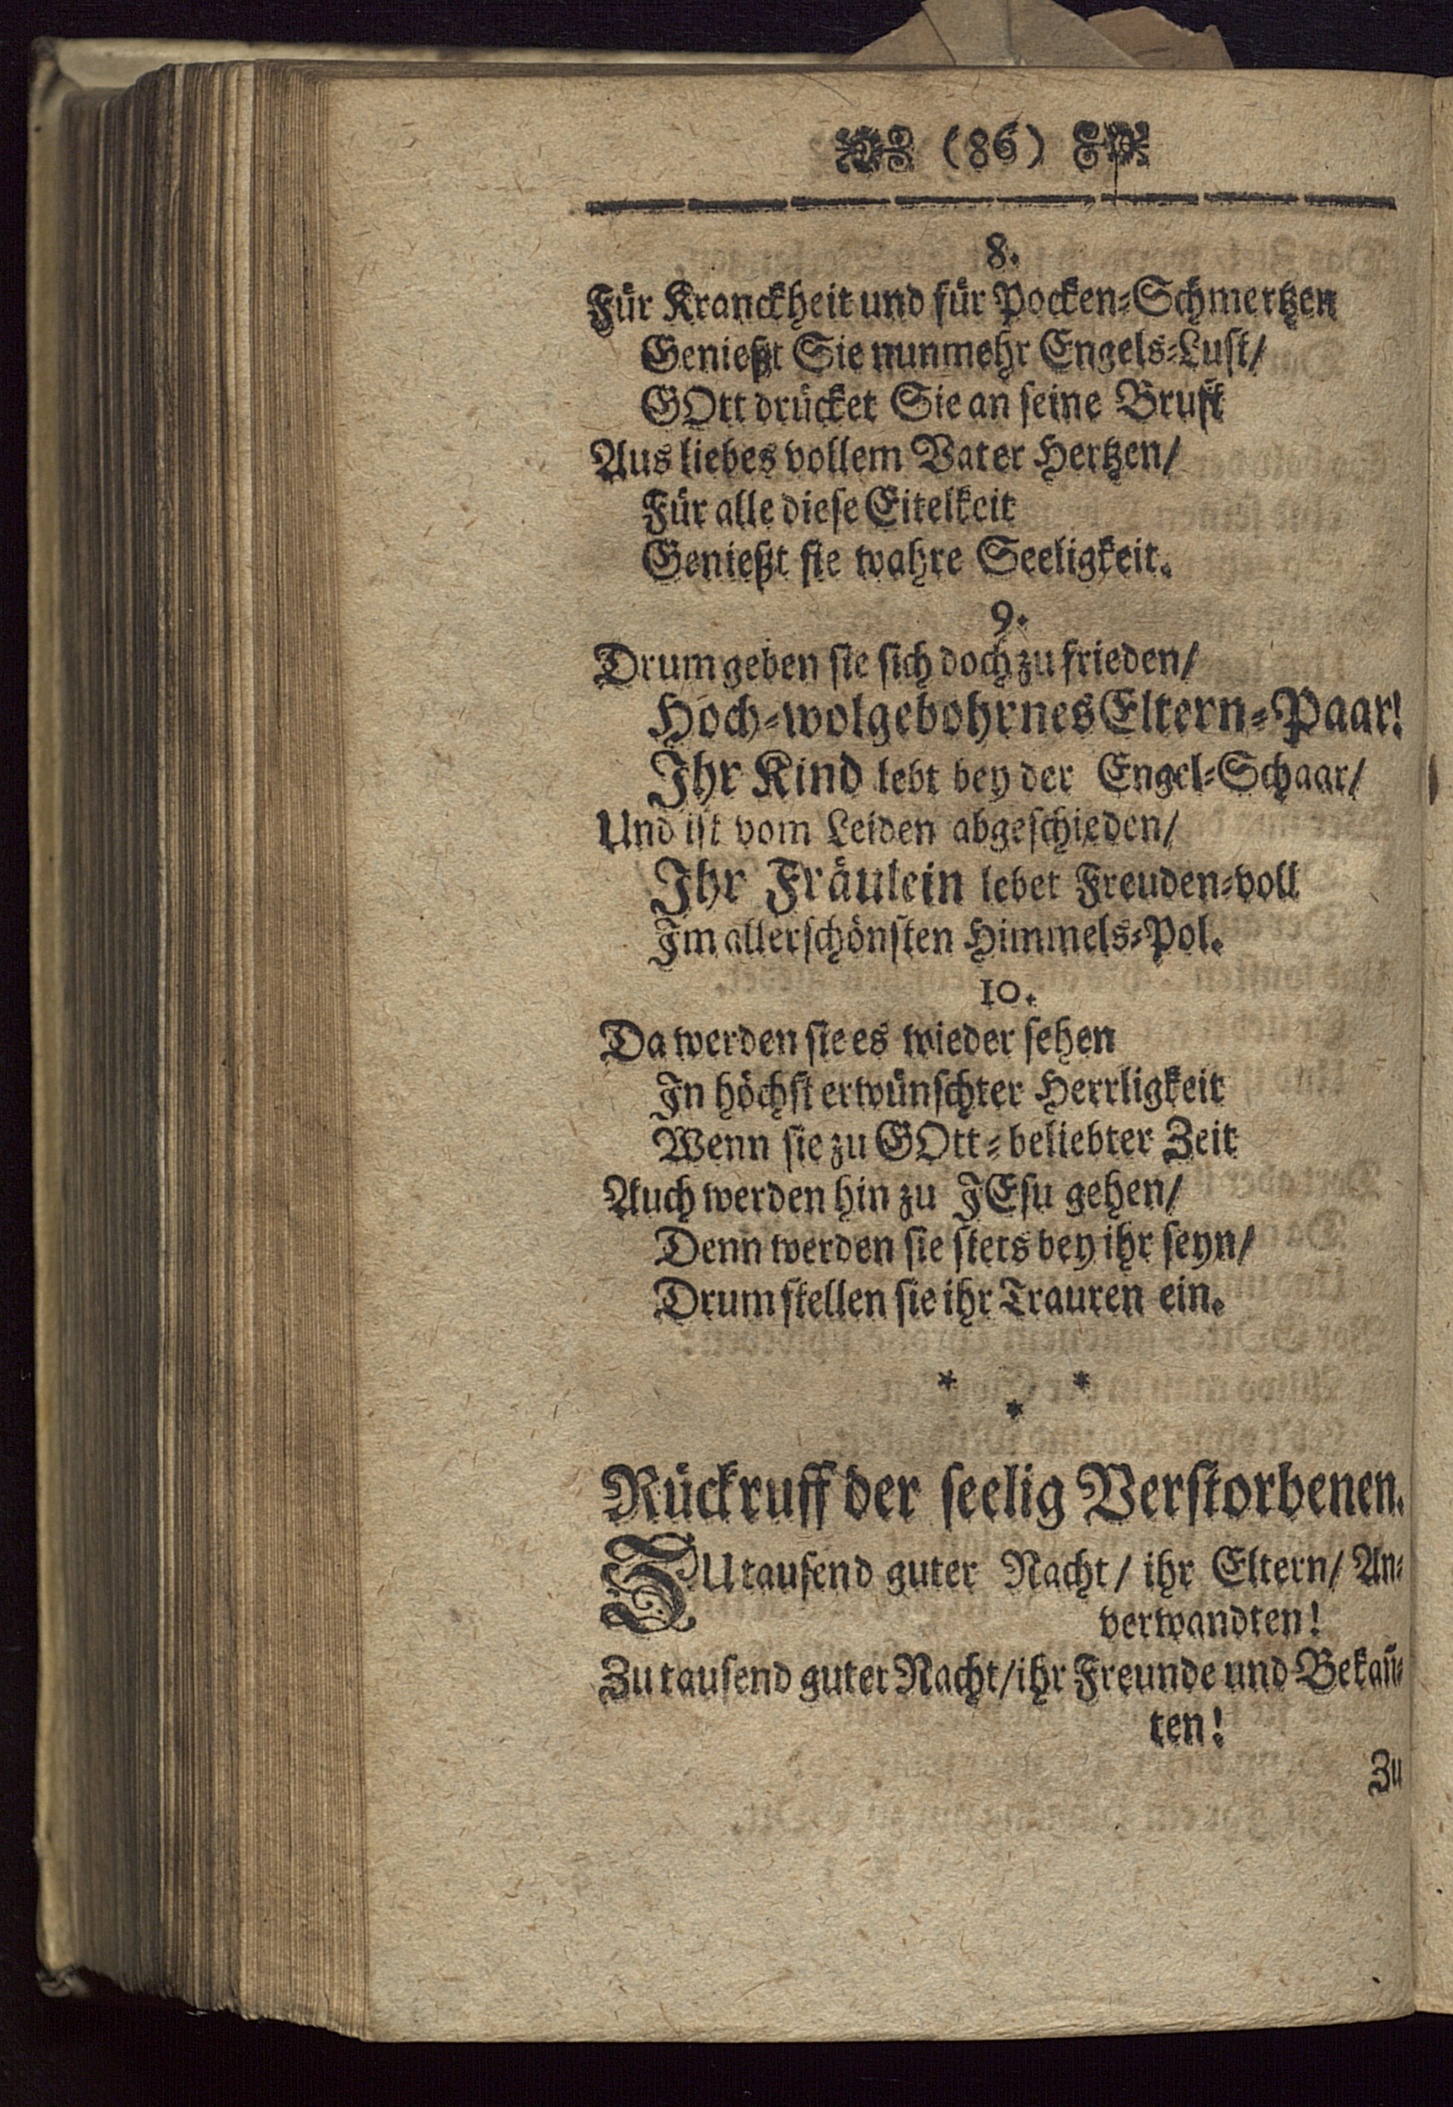 (86)
8.
Für Kranckheit und für Pocken-Schmertzen
Genießt Sie nunmehr Engels-Lust/
GOtt drücket Sie an seine Brust
Aus liebes vollem Vater Hertzen/
Für alle diese Eitelkeit
Genießt sie wahre Seeligkeit.
9.
Drum geben sie sich doch zu frieden/
Hoch-wolgebohrnes Eltern-Paar!
Ihr Kind lebt bey der Engel-Schaar/
Und ist vom Leiden abgeschieden/
Ihr Fräulein lebet Freuden-voll
Im allerschönsten Himmels-Pol.
10.
Da werden sie es wieder sehen
In höchst erwünschter Herrligkeit
Wenn sie zu GOtt-beliebter Zeit
Auch werden hin zu JEsu gehen/
Denn werden sie stets bey ihr seyn/
Drum stellen sie ihr Trauren ein.
* *
*
Rückruff der seelig Verstorbenen.
ZU tausend guter Nacht/ ihr Eltern/ An-
verwandten!
Zu tausend guter Nacht/ ihr Freunde und Bekañ-
ten!
Zu